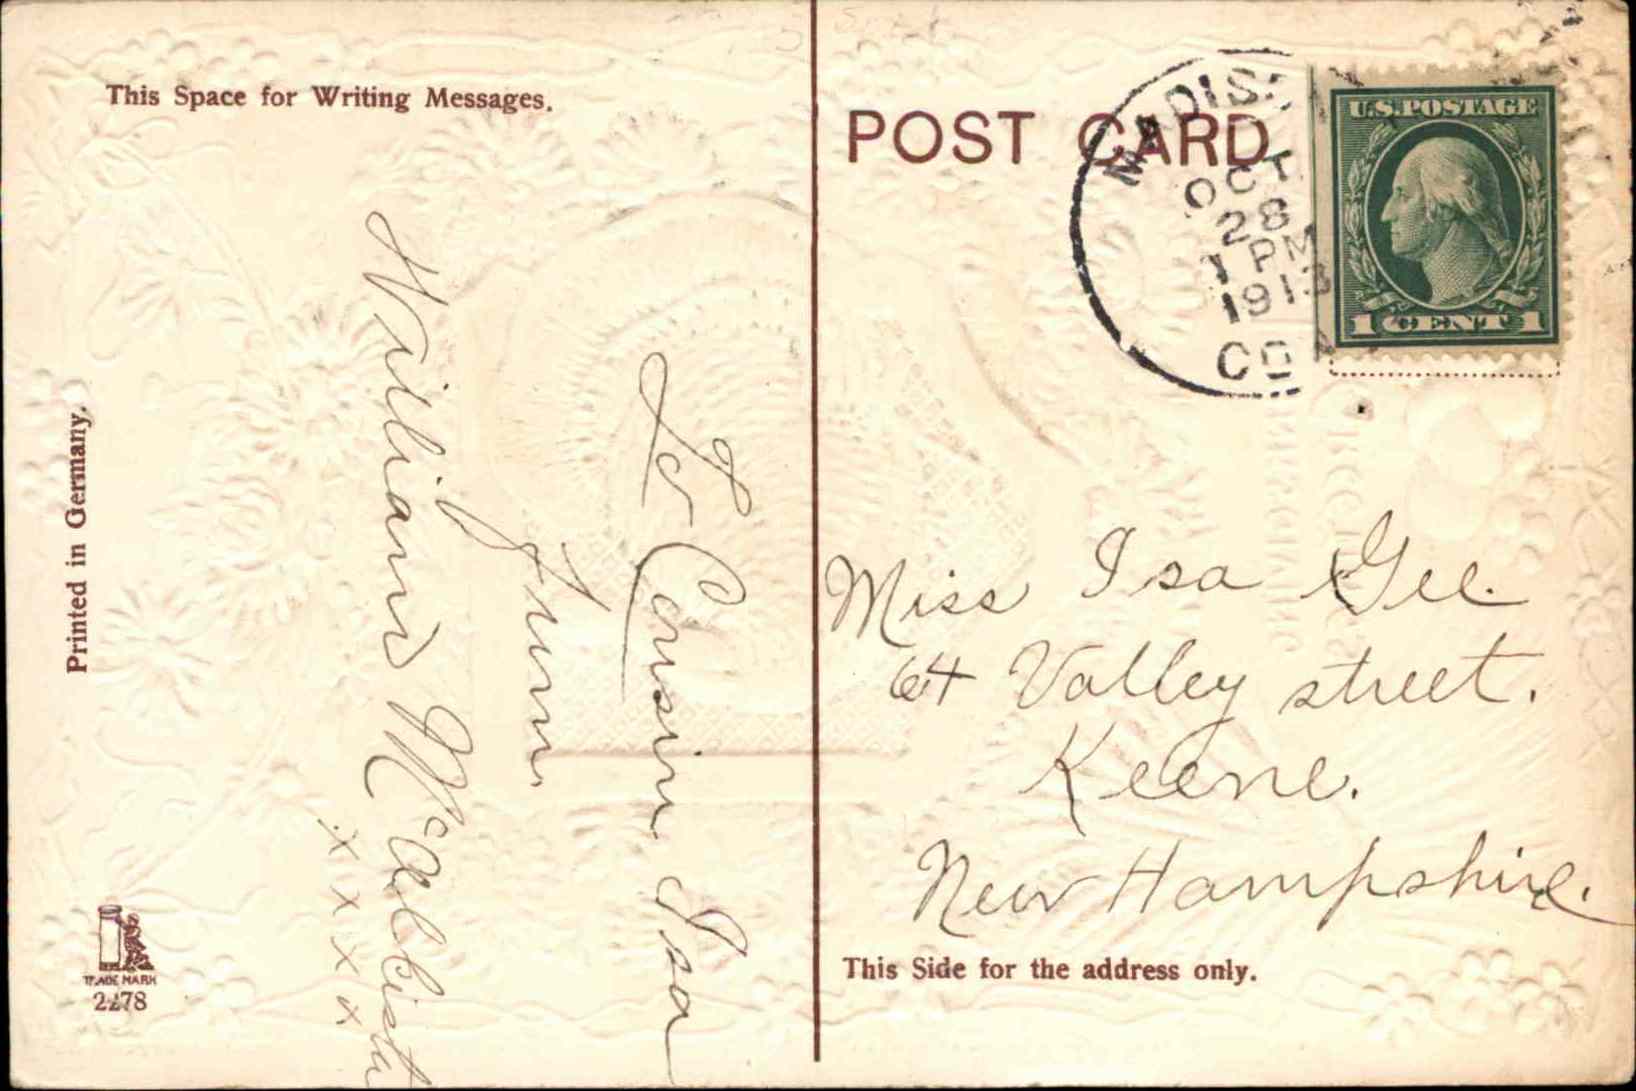 This Space for Writing Messages.
To Cousin Isa
From
William McAllister
x x x x
Printed in Germany.
TRADE MARK
2278
POST CARD
MADIS
OCT
28
1 PM
1913
CO
U.S. POSTAGE
1 CENT 1
Miss Isa Gee.
64 Valley street.
Keene.
New Hampshire.
This Side for the address only.